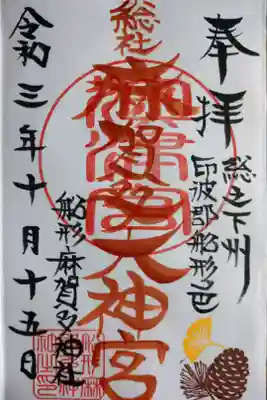 奉拝
総之下州
印波郡船形邑
総社
麻賀多大神宮
船形麻賀多神社
令和三年十月十五日